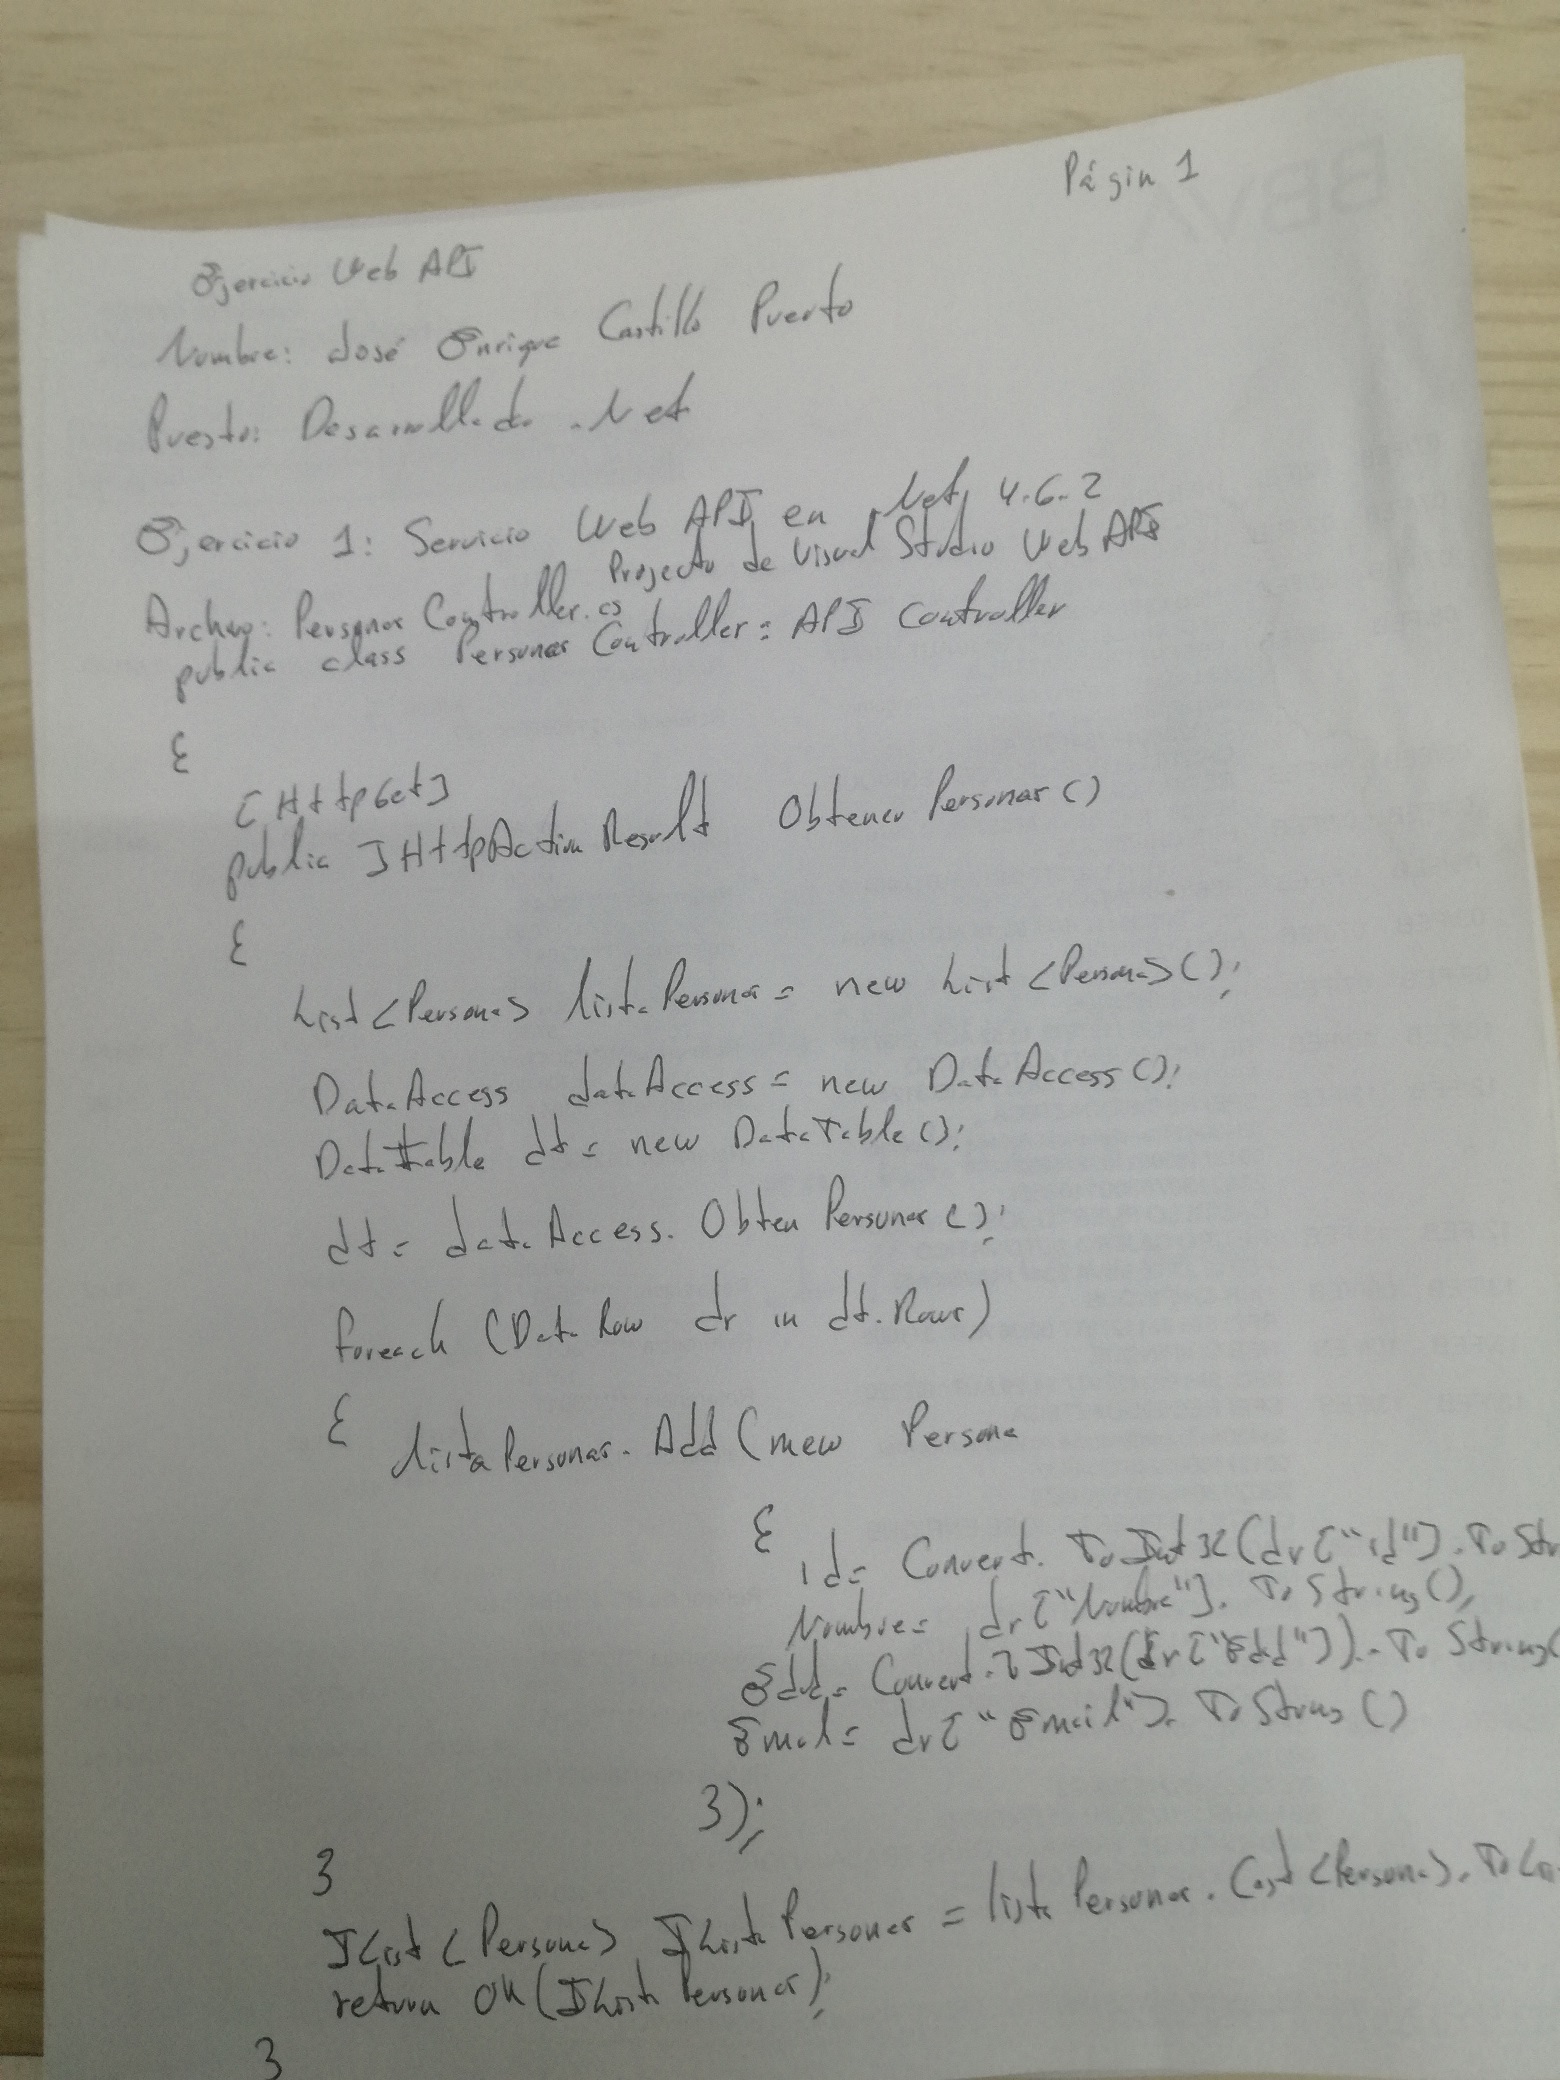 Págin 1
Ejercicio Web API
Nombre: José Enrique Castillo Puerto
Puesto: Desarrollado .Net
Ejercicio 1: Servicio Web API en .Net 4.6.2
Proyecto de Visual Studio Web API
Archivo: PersonasController.cs
public class PersonasController : API Controller
{
[HttpGet]
public IHttpActionResult ObtenerPersonas()
{
List<Persona> listaPersona = new List<Persona>();
DataAccess dataAccess = new DataAccess();
DataTable dt = new DataTable();
dt = dataAccess.ObtenPersonas();
foreach (DataRow dr in dt.Rows)
{ listaPersonas.Add(new Persona
{
id= Convert.ToInt32(dr["id"].ToStr
Nombre= dr["Nombre"].ToString(),
Edad= Convert.ToInt32(dr["Edad"]).ToString(
Email= dr["Email"].ToString()
});
}
IList<Persona> IListaPersonas = listaPersonas.Cast<Persona>.ToLis
return OK(IListaPersonas);
}